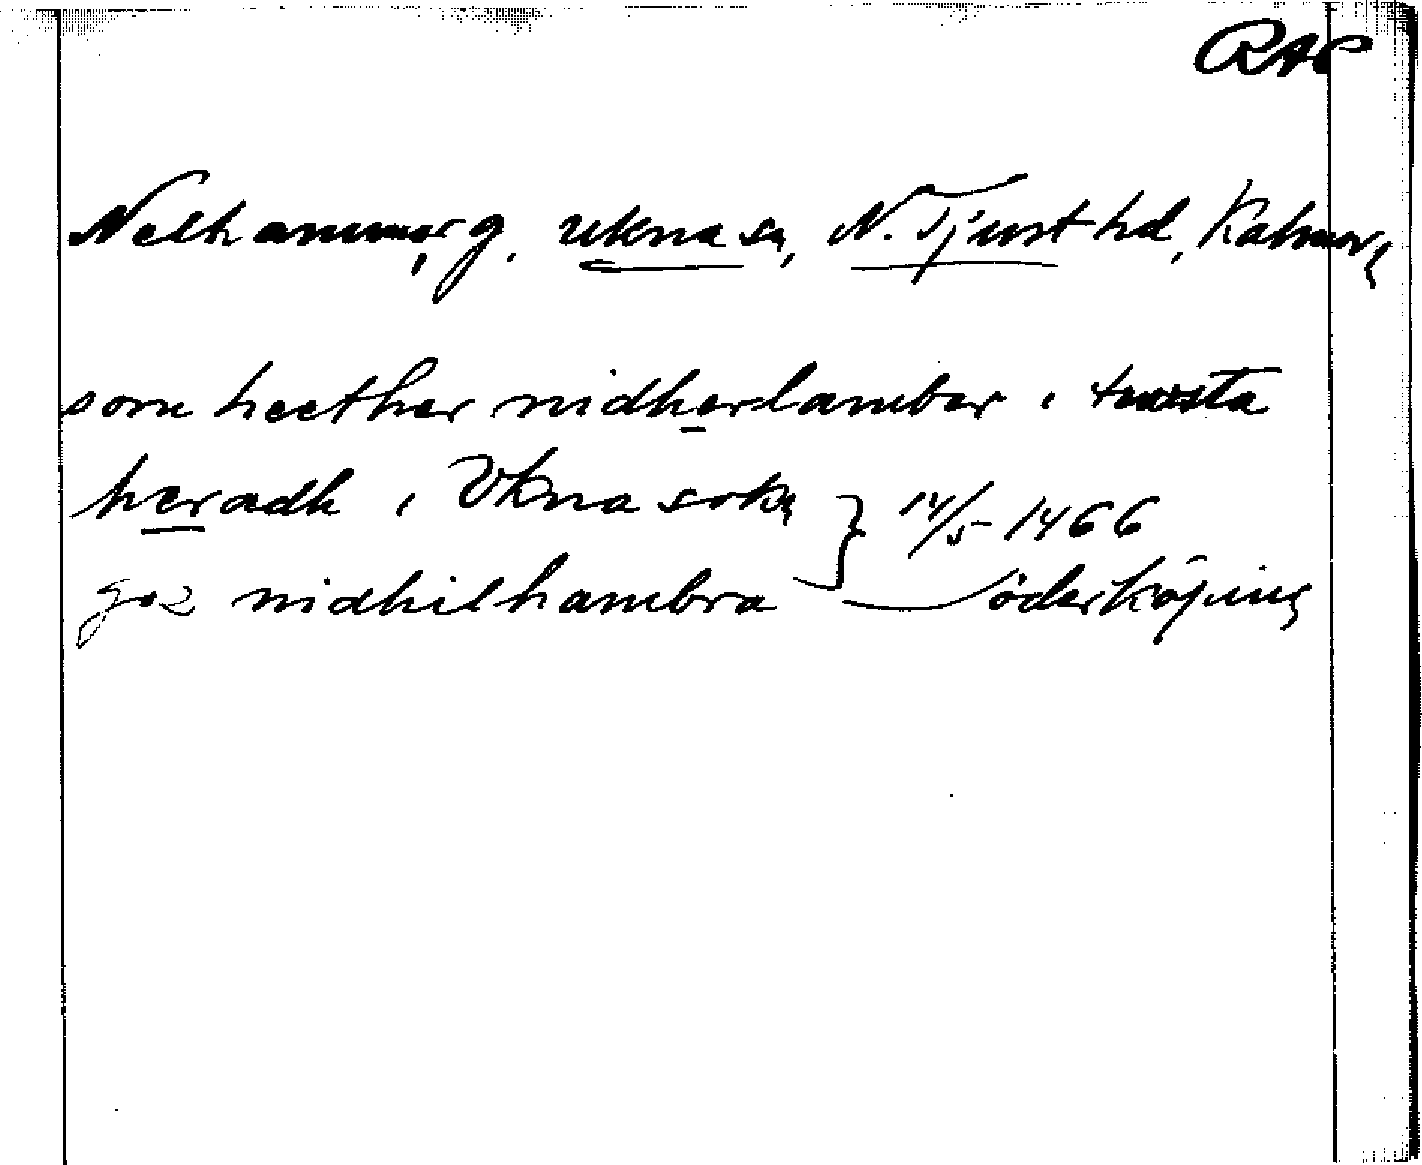 RAP
Nelhammar, g. Ukna sn, N. Tjust hd, Kalmar l
som heether nidherlamber i tiwsta
heradh i Vkna sokn } 14/5 1466
goz nidhilhambra Söderköping